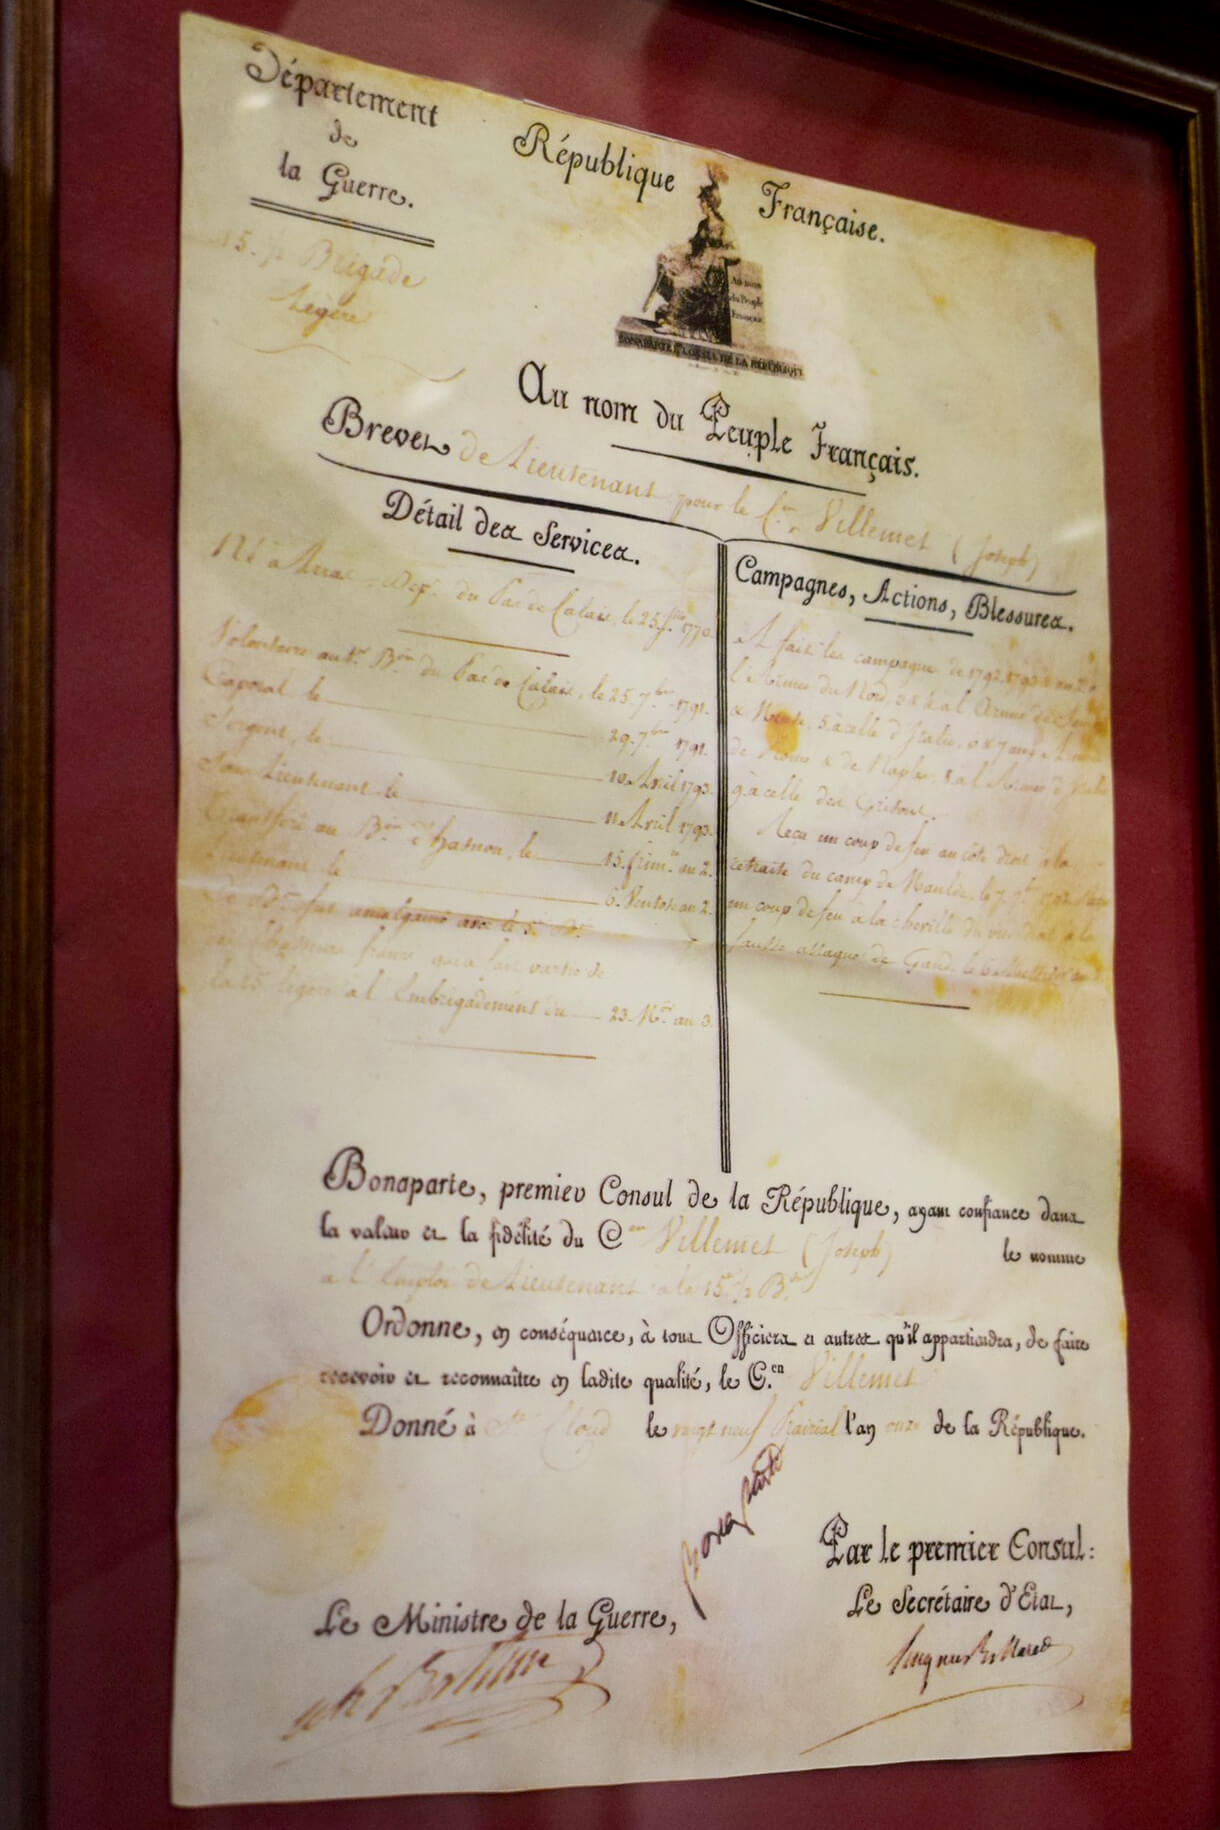 Département
de
la Guerre.
République Française.
15. ½ Brigade
Légère
Au nom
du Peuple
Français
BONAPARTE 1er CONSUL DE LA RÉPUBLIQUE
Au nom du Peuple Français.
Brevet de Lieutenant pour le C.en Villemet (Joseph)
Détail des Services.
Né à Arras Dép.t du Pas de Calais, le 25 1770.
Volontaire au 1.er B.on du Pas de Calais, le 25. 7.bre 1791.
Caporal le 29. 7.bre 1791.
Sergent, le 10 Avril 1793.
Sous Lieutenant le 11 Avril 1793.
Transféré au B.on le 15. frim.re au 2.
Lieutenant le 6. Ventose au 2.
fut amalgamé avec le 5.e
la 15. légère à l'Embrigadement du 23. au 3.
Campagnes, Actions, Blessures.
A fait les campagnes de 1792. 1793
l'Armée du Nord, à l'Armée de
& Meuse, 5 à celle d'Italie,
de Rome & de Naples, 8 à l'Armée d'Italie
9 à celle des Grisons.
Reçu un coup de feu au côté droit à la
retraite du camp de Maulde, le 7. 1792.
un coup de feu à la cheville du pied droit à la
fausse attaque de Gand, le 6
Bonaparte, premier Consul de la République, ayant confiance dans
la valeur et la fidélité du C.en Villemet (Joseph) le nomme
à l'Emploi de Lieutenant à la 15.e ½ B.de
Ordonne, en conséquence, à tous Officiers et autres qu'il appartiendra, de faire
recevoir et reconnaître en ladite qualité, le C.en Villemet
Donné à St Cloud le vingt neuf Prairial l'an onze de la République.
Bonaparte
Par le premier Consul:
Le Secrétaire d'Etat,
Hugues B. Maret
Le Ministre de la Guerre,
Berthier